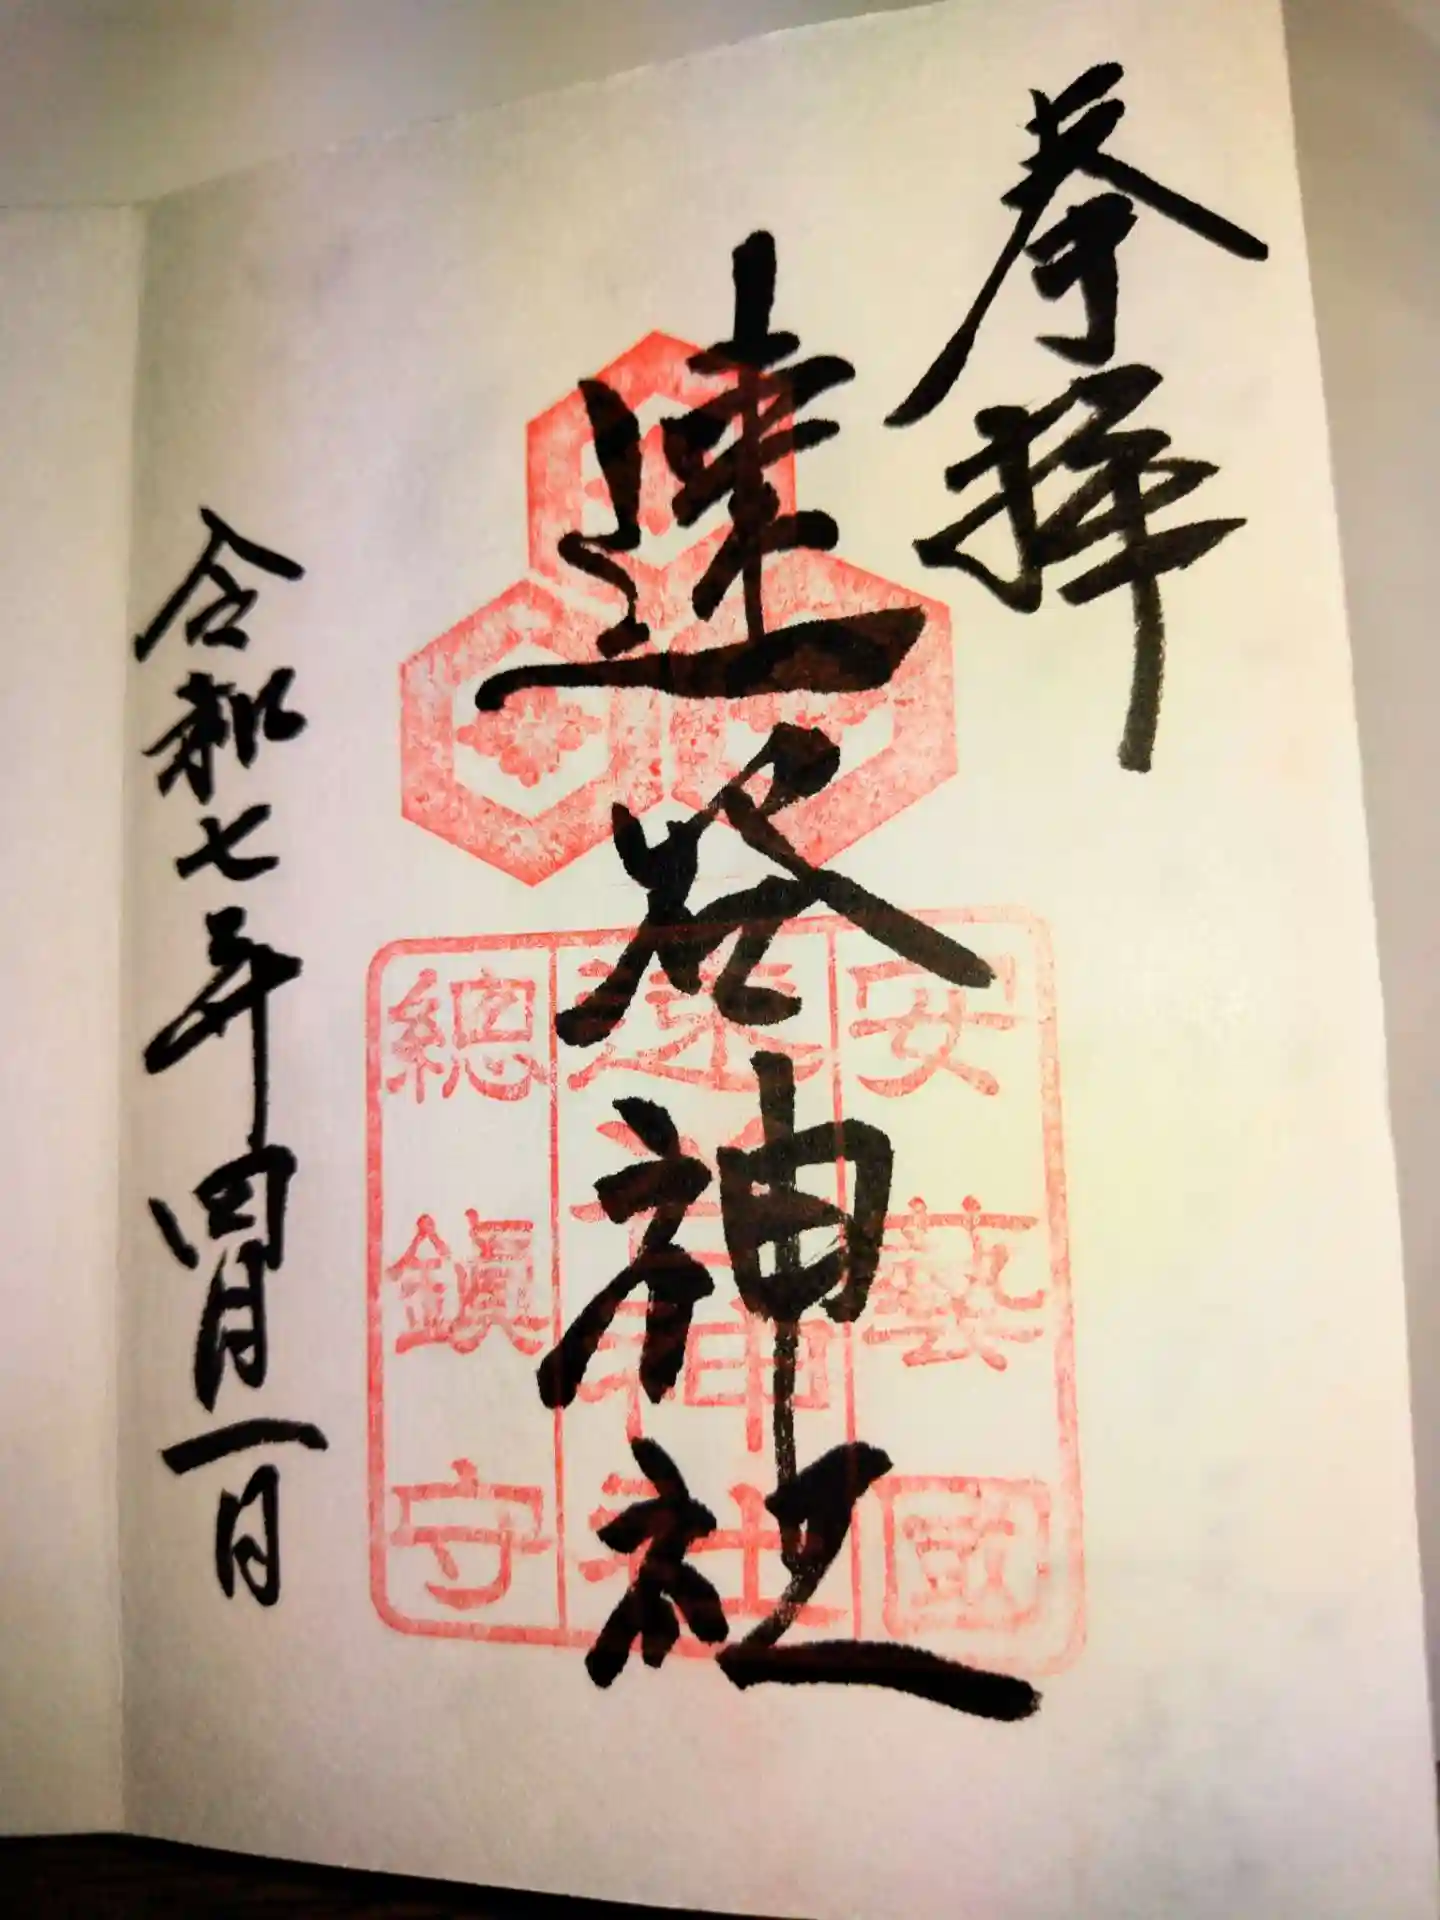 奉拝
速谷神社
令和七年四月一日
安藝國
速谷神社
總鎭守